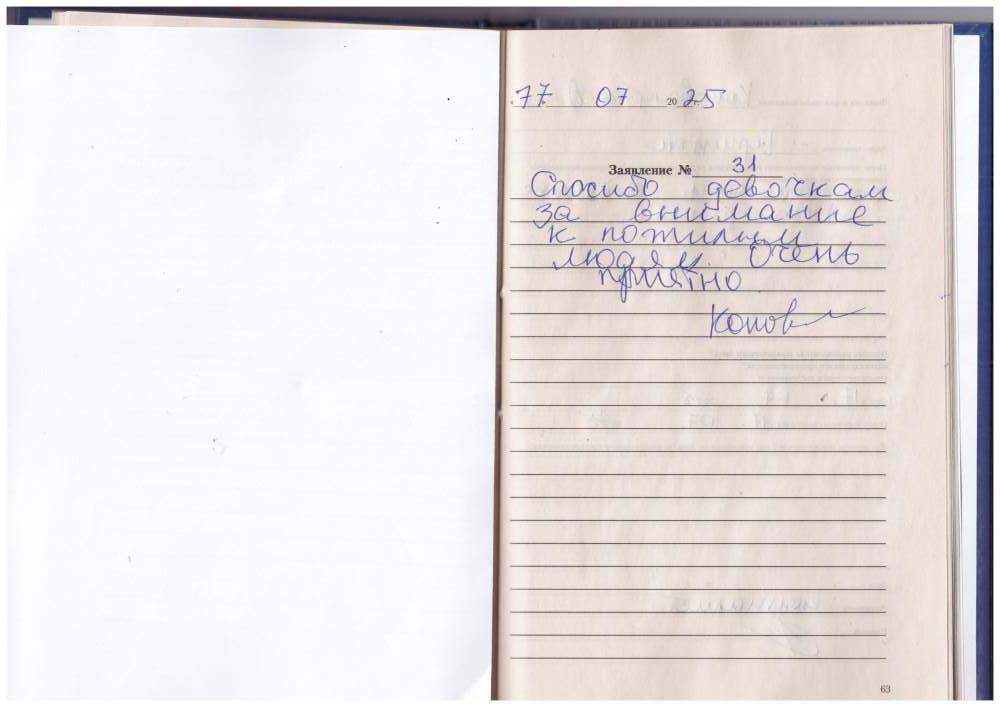 17. 07 2025
Заявление № 31
Спосибо девочкам
за внимание
к пожилым
людям. Очень
приятно
63